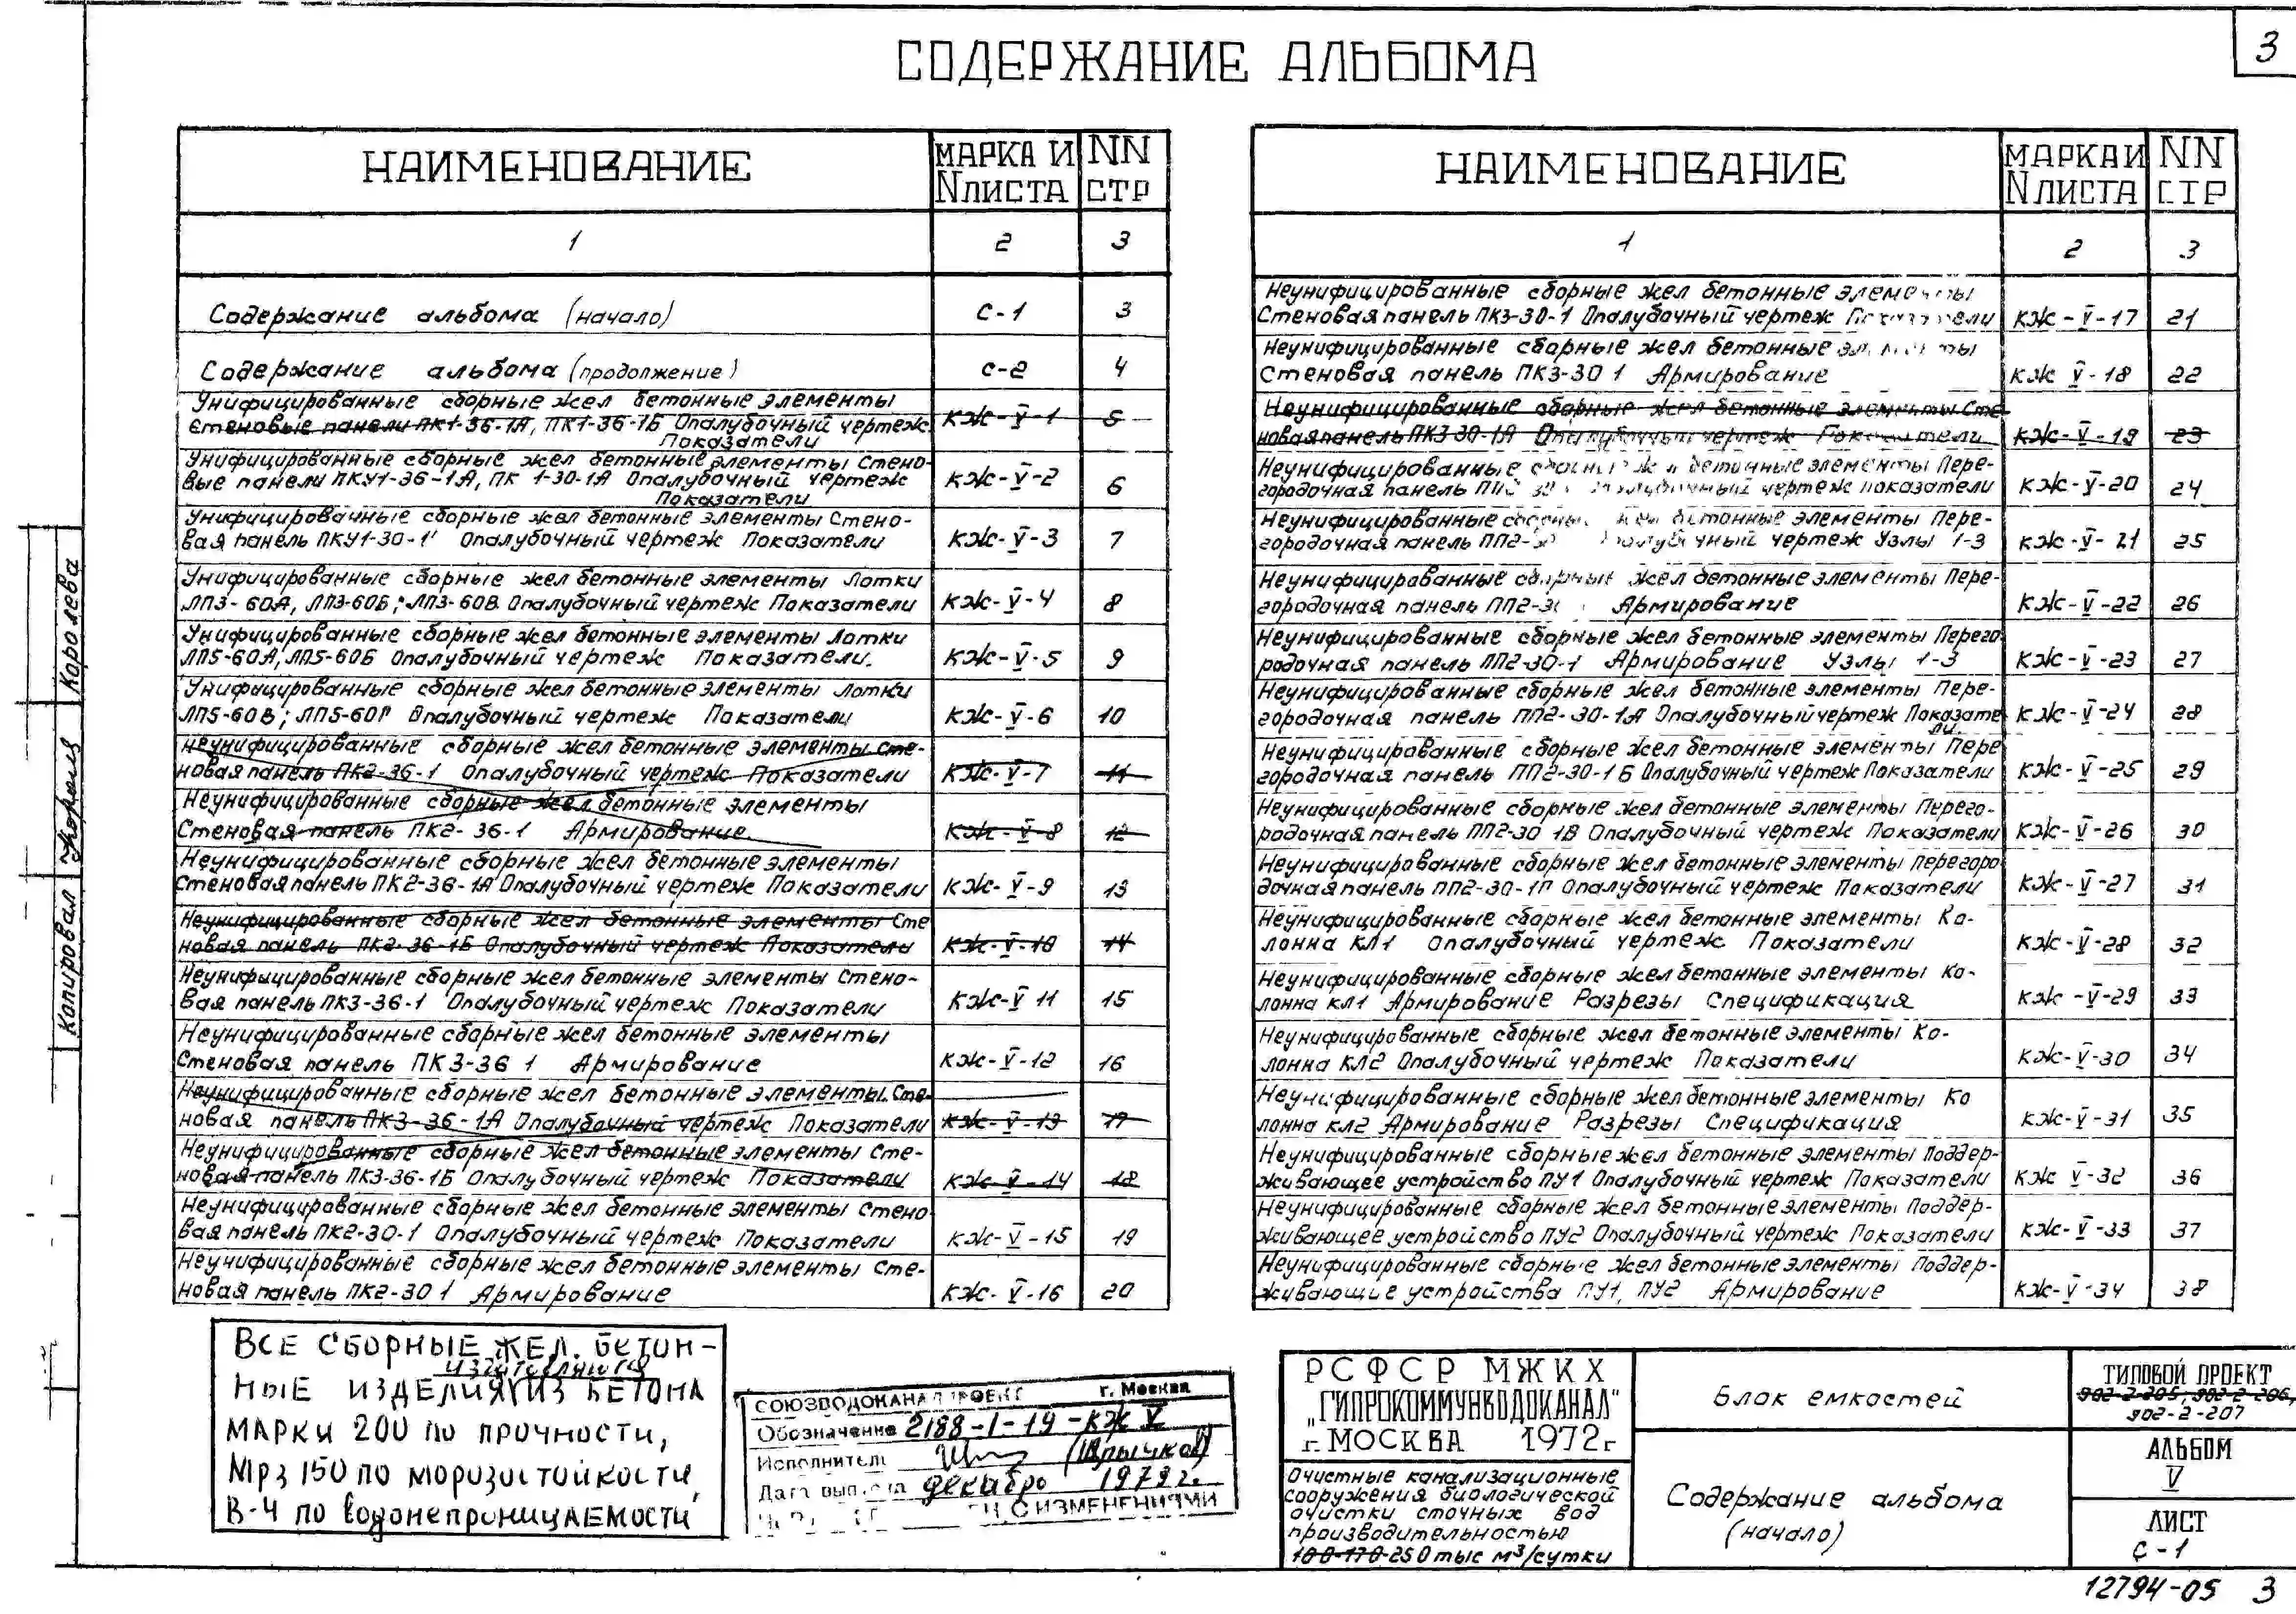 3
СОДЕРЖАНИЕ АЛЬБОМА
НАИМЕНОВАНИЕ
МАРКА И
N ЛИСТА
NN
СТР
1
2
3
Содержание альбома (начало)
С-1
3
Содержание альбома (продолжение)
С-2
4
Унифицированные сборные жел бетонные элементы
Стеновые панели ПК1-36-1А, ПК1-36-1Б Опалубочный чертеж
Показатели
КЖ-V-1
5
Унифицированные сборные жел бетонные элементы Стено-
вые панели ПКУ1-36-1А, ПК 1-30-1А Опалубочный чертеж
Показатели
КЖ-V-2
6
Унифицированные сборные жел бетонные элементы Стено-
вая панель ПКУ1-30-1 Опалубочный чертеж Показатели
КЖ-V-3
7
Унифицированные сборные жел бетонные элементы Лотки
ЛП3-60А, ЛП3-60Б; ЛП3-60В Опалубочный чертеж Показатели
КЖ-V-4
8
Унифицированные сборные жел бетонные элементы Лотки
ЛП5-60А, ЛП5-60Б Опалубочный чертеж Показатели.
КЖ-V-5
9
Унифицированные сборные жел бетонные элементы Лотки
ЛП5-60В; ЛП5-60Г Опалубочный чертеж Показатели
КЖ-V-6
10
Неунифицированные сборные жел бетонные элементы Сте-
новая панель ПК2-36-1 Опалубочный чертеж Показатели
КЖ-V-7
11
Неунифицированные сборные жел бетонные элементы
Стеновая панель ПК2-36-1 Армирование
КЖ-V-8
12
Неунифицированные сборные жел бетонные элементы
Стеновая панель ПК2-36-1А Опалубочный чертеж Показатели
КЖ-V-9
13
Неунифицированные сборные жел бетонные элементы Сте
новая панель ПК2-36-1Б Опалубочный чертеж Показатели
КЖ-V-10
14
Неунифицированные сборные жел бетонные элементы Стено-
вая панель ПК3-36-1 Опалубочный чертеж Показатели
КЖ-V 11
15
Неунифицированные сборные жел бетонные элементы
Стеновая панель ПК 3-36 1 Армирование
КЖ-V-12
16
Неунифицированные сборные жел бетонные элементы. Сте-
новая панель ПК3-36-1А Опалубочный чертеж Показатели
КЖ-V-13
17
Неунифицированные сборные жел бетонные элементы Сте-
новая панель ПК3-36-1Б Опалубочный чертеж Показатели
КЖ-V-14
18
Неунифицированные сборные жел бетонные элементы Стено
вая панель ПК2-30-1 Опалубочный чертеж Показатели
КЖ-V-15
19
Неунифицированные сборные жел бетонные элементы Сте-
новая панель ПК2-30 1 Армирование
КЖ-V-16
20
НАИМЕНОВАНИЕ
МАРКА И
N ЛИСТА
NN
СТР
1
2
3
Неунифицированные сборные жел бетонные элементы
Стеновая панель ПК3-30-1 Опалубочный чертеж Показатели
КЖ-V-17
21
Неунифицированные сборные жел бетонные элементы
Стеновая панель ПК3-30 1 Армирование
КЖ V-18
22
Неунифицированные сборные жел бетонные элементы Сте
новая панель ПК3 30-1А Опалубочный чертеж Показатели
КЖ-V-19
23
Неунифицированные сборные жел бетонные элементы Пере-
городочная панель чертеж показатели
КЖ-V-20
24
Неунифицированные сборные жел бетонные элементы Пере-
городочная панель Опалубочный чертеж Узлы 1-3
КЖ-V-21
25
Неунифицированные сборные жел бетонные элементы Пере-
городочная панель ПП2-30 Армирование
КЖ-V-22
26
Неунифицированные сборные жел бетонные элементы Перего
родочная панель ПП2-30-1 Армирование Узлы 1-3
КЖ-V-23
27
Неунифицированные сборные жел бетонные элементы Пере-
городочная панель ПП2-30-1А Опалубочный чертеж Показате
ли.
КЖ-V-24
28
Неунифицированные сборные жел бетонные элементы Пере
городочная панель ПП2-30-1Б Опалубочный чертеж Показатели
КЖ-V-25
29
Неунифицированные сборные жел бетонные элементы Перего-
родочная панель ПП2-30 1В Опалубочный чертеж Показатели
КЖ-V-26
30
Неунифицированные сборные жел бетонные элементы Перегоро
дочная панель ПП2-30-1Г Опалубочный чертеж Показатели
КЖ-V-27
31
Неунифицированные сборные жел бетонные элементы Ко-
лонна КЛ1 Опалубочный чертеж Показатели
КЖ-V-28
32
Неунифицированные сборные жел бетонные элементы Ко-
лонна КЛ1 Армирование Разрезы Спецификация
КЖ-V-29
33
Неунифицированные сборные жел бетонные элементы Ко-
лонна КЛ2 Опалубочный чертеж Показатели
КЖ-V-30
34
Неунифицированные сборные жел бетонные элементы Ко
лонна КЛ2 Армирование Разрезы Спецификация
КЖ-V-31
35
Неунифицированные сборные жел бетонные элементы Поддер-
живающее устройство ПУ1 Опалубочный чертеж Показатели
КЖ V-32
36
Неунифицированные сборные жел бетонные элементы Поддер-
живающее устройство ПУ2 Опалубочный чертеж Показатели
КЖ-V-33
37
Неунифицированные сборные жел бетонные элементы Поддер-
живающие устройства ПУ1, ПУ2 Армирование
КЖ-V-34
38
Копировал
Королева
ВСЕ СБОРНЫЕ ЖЕЛ. БЕТОН-
изготовляются
НЫЕ ИЗДЕЛИЯ ИЗ БЕТОНА
МАРКИ 200 ПО ПРОЧНОСТИ,
Мрз 150 ПО МОРОЗОСТОЙКОСТИ,
В-4 ПО ВОДОНЕПРОНИЦАЕМОСТИ
СОЮЗВОДОКАНАЛПРОЕКТ г. Москва
Обозначение 2188-1-19-КЖ V
Исполнитель
Дата выпуска декабрь 1979г.
С ИЗМЕНЕНИЯМИ
РСФСР МЖКХ
„ГИПРОКОММУНВОДОКАНАЛ"
г. МОСКВА 1972г
Очистные канализационные
сооружения биологической
очистки сточных вод
производительностью
100-170-250 тыс м³/сутки
Блок емкостей
Содержание альбома
(начало)
ТИПОВОЙ ПРОЕКТ
902-2-205, 902-2-206,
902-2-207
АЛЬБОМ
V
ЛИСТ
С-1
12794-05 3